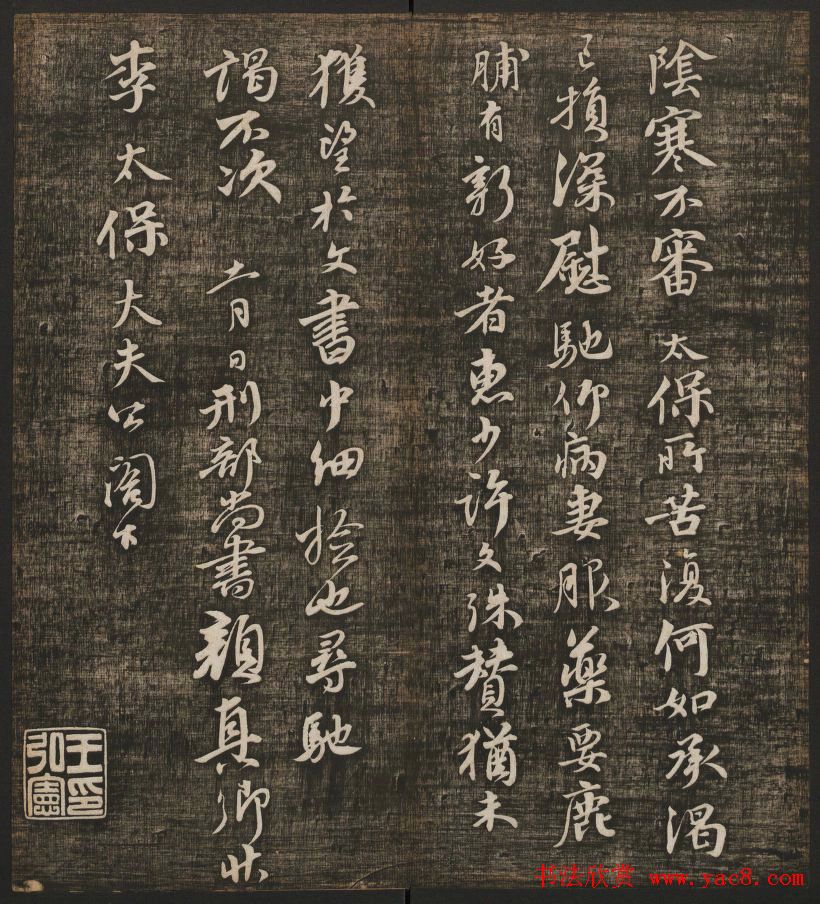 陰寒不審太保所苦復何如承渴
已損深慰馳仰病妻服藥要鹿
脯有新好者惠少許文殊贊猶未
獲望於文書中細撿也尋馳
謁不次十一月日刑部尚書顏真卿狀
李太保大夫公閤下
王弘印憲
书法欣赏 www.yac8.com